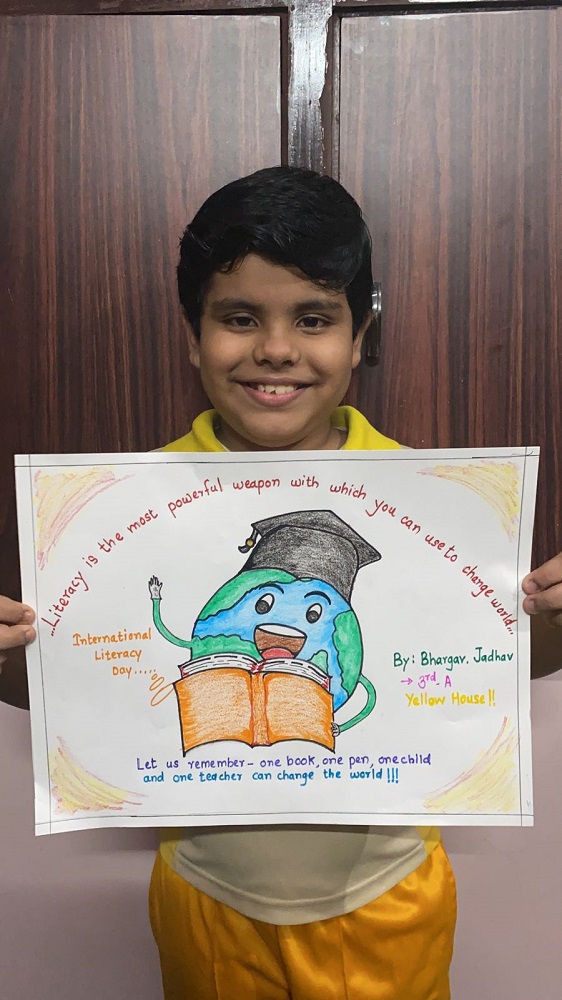 ...Literacy is the most powerful weapon with which you can use to change world...
International
Literacy
Day.....
By: Bhargav. Jadhav
→ 3rd. A
Yellow House!!
Let us remember - one book, one pen, one child
and one teacher can change the world!!!